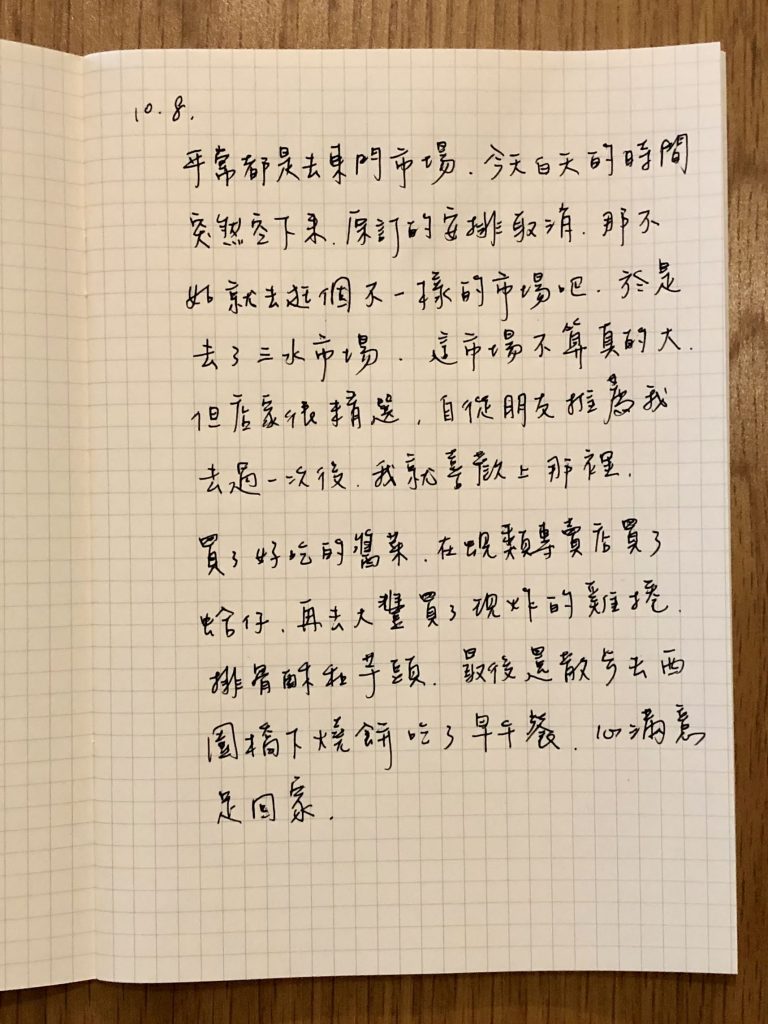 10.8.
平常都是去東門市場.今天白天的時間
突然空下來.原訂的安排取消.那不
如就去逛個不一樣的市場吧.於是
去了三水市場.這市場不算真的大.
但店家很精選,自從朋友推薦我
去過一次後.我就喜歡上那裡.
買了好吃的醬菜.在蜆類專賣店買了
蛤仔.再去大豐買了現炸的雞捲.
排骨酥和芋頭.最後還散步去西
園橋下燒餅吃了早午餐.心滿意
足回家.